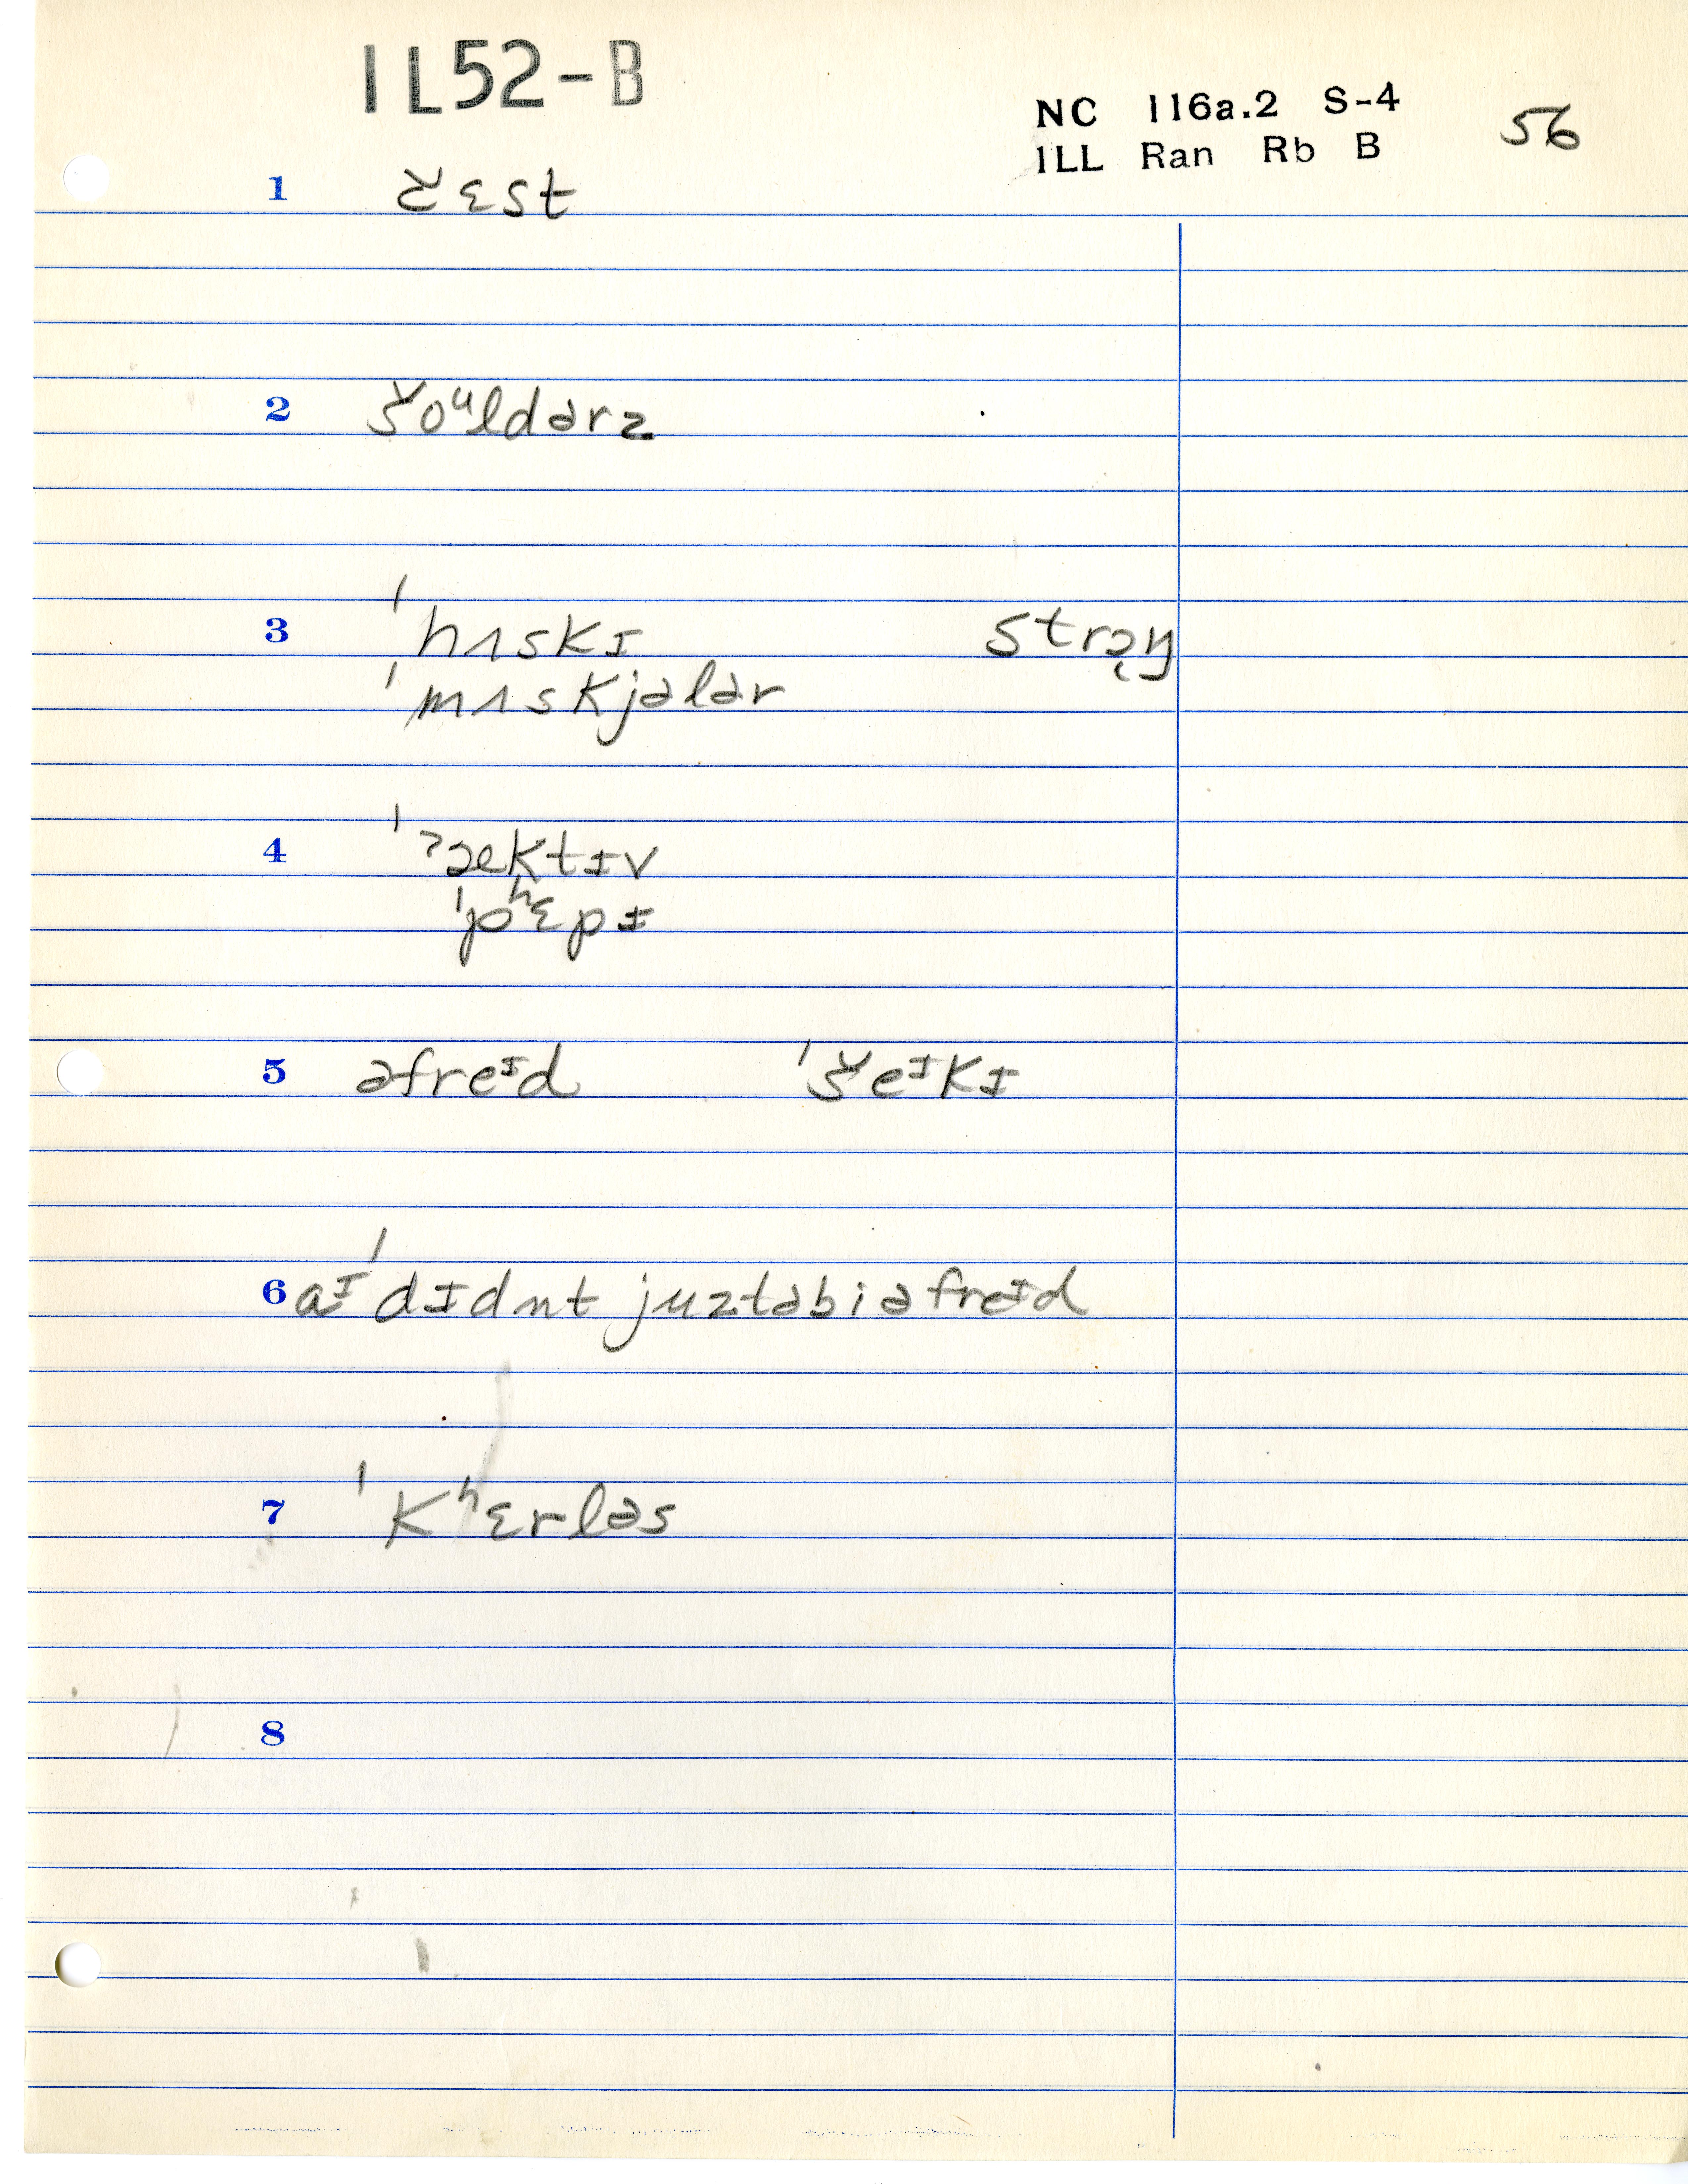 IL52-B
NC 116a.2 S-4 56
ILL Ran Rb B
1 č̌ɛst
2 šoᵘldərz
3 ˈhʌskɪ strɔ̜ŋ
ˈmʌskjələr
4 ˈʔæktɪv
ˈpʰɛpɪ
5 əfreᶦd ˈšeᶦkɪ
6 aᶦ ˈdɪdnt juztəbiəfreᶦd
7 ˈkʰɛrləs
8